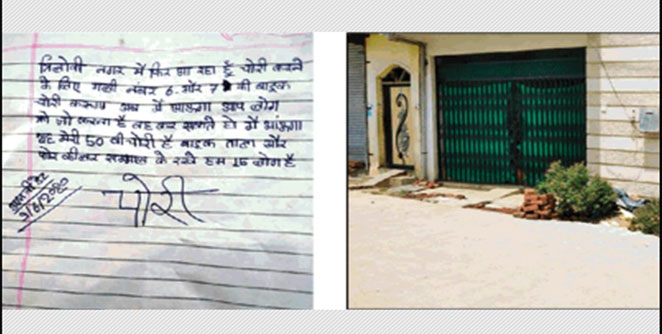 त्रिलोकी नगर में फिर आ रहा हूँ चोरी करने
के लिए गली नंबर 6 और 7 की बाइक
चोरी करूगा अब में आऊगा आप लोग
को जो करना है वह कर सकते हो में आंऊगा
यह मेरी 50 वी चोरी है बाइक ताला और
सम्भाल के रखे हम 15 लोग है
चोरी